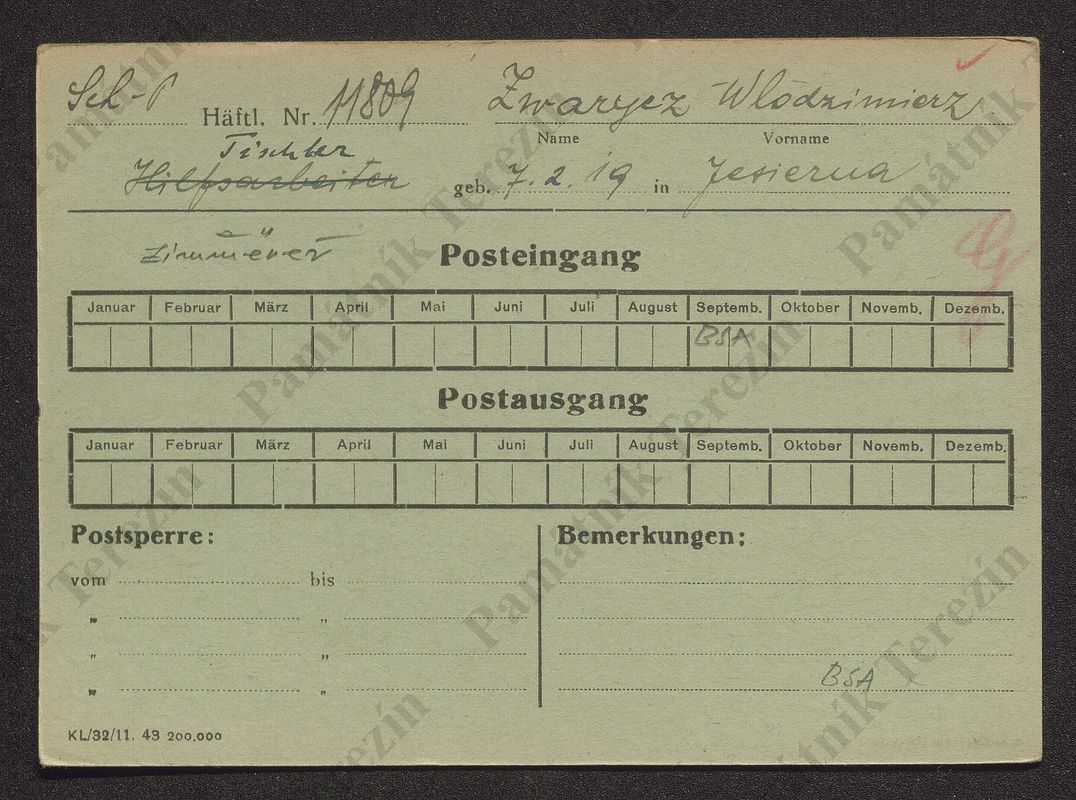 Sch-P Häftl. Nr. 11809 Zwarycz Wlodzimierz
Name Vorname
Tischler
Hilfsarbeiter geb. 7. 2. 19 in Jesierna
Posteingang
Januar Februar März April Mai Juni Juli August Septemb. Oktober Novemb. Dezemb.
BSA
Postausgang
Januar Februar März April Mai Juni Juli August Septemb. Oktober Novemb. Dezemb.
Postsperre: Bemerkungen:
vom bis
" "
" "
" "
BSA
KL/32/11. 43 200.000
Památník Terezín